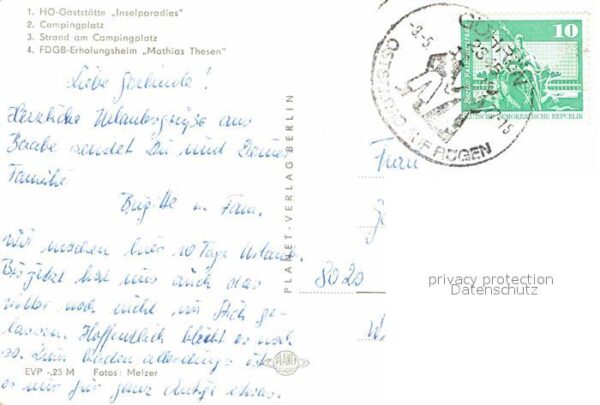 1. HO-Gaststätte „Inselparadies"
2. Campingplatz
3. Strand am Campingplatz
4. FDGB-Erholungsheim „Mathias Thesen"
Liebe Gerlinde!
Herzliche Urlaubsgrüße aus
Baabe sendet Dir und Deiner
Familie
Brigitte u. Fam.
Wir machen hier 10 Tage Urlaub.
Bis jetzt hat uns auch das
Wetter noch nicht im Stich ge-
lassen. Hoffentlich bleibt es noch
so. Zum baden allerdings ist
es mir für ganz
EVP -,25 M Fotos: Melzer
PLANET-VERLAG BERLIN
PLANET
GÖHREN
OSTSEEBAD AUF RÜGEN
10
DEUTSCHE DEMOKRATISCHE REPUBLIK
Frau
8020
privacy protection
Datenschutz